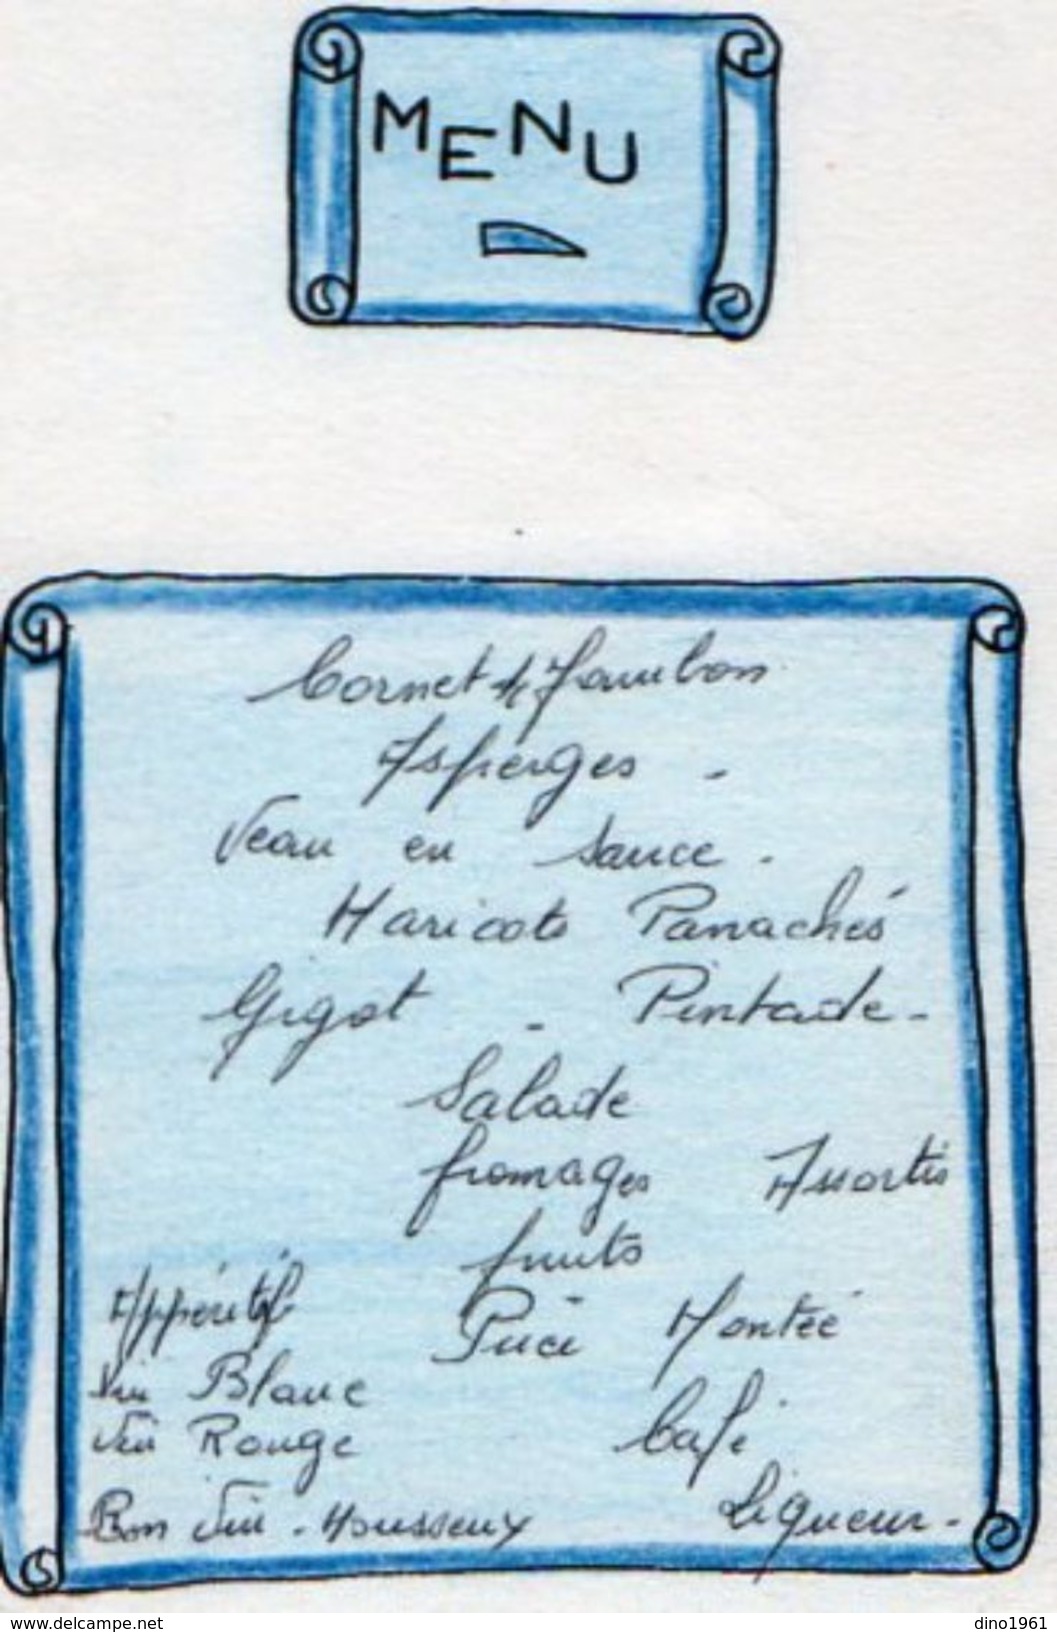 MENU
Cornet de Jambon
Asperges -
Veau en sauce -
Haricots Panachés
Gigot - Pintade -
Salade
fromages Assortis
fruits
Appéritif
Pièce Montée
Vin Blanc
Vin Rouge
Café
Bon Vin - Mousseux
Liqueur -
www.delcampe.net
dino1961